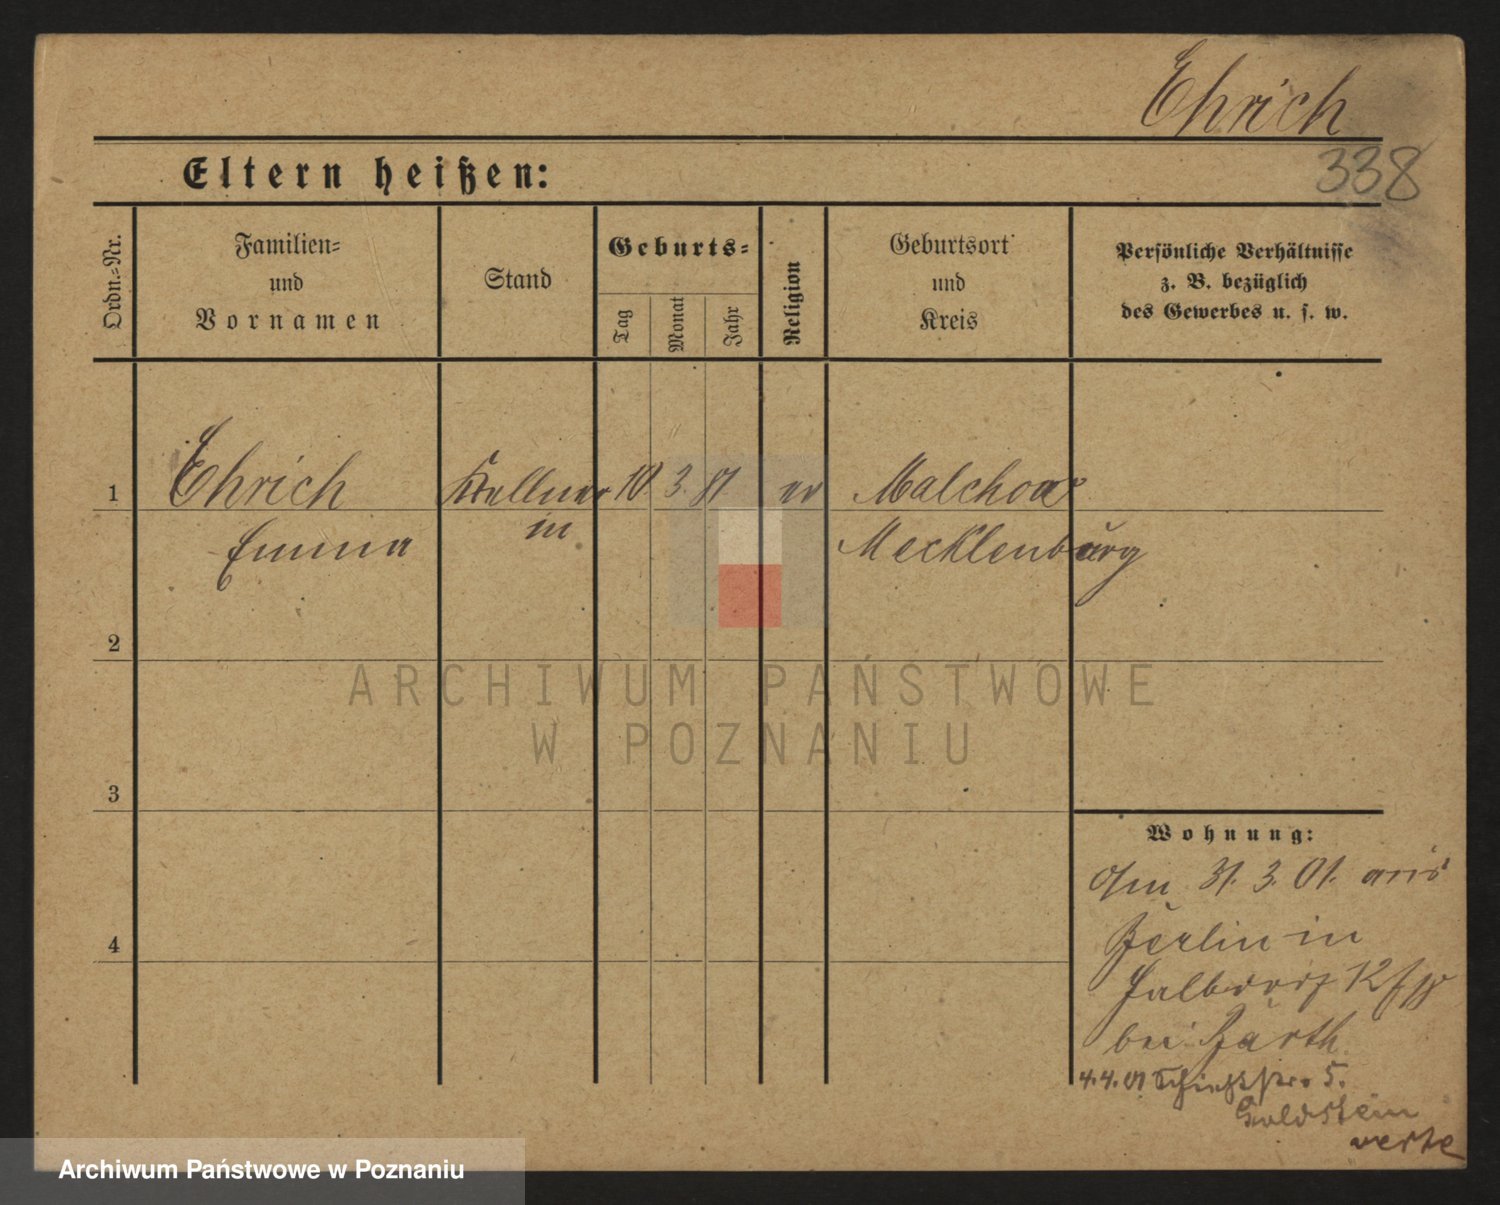 Ehrich
338
Eltern heißen:
Ordn.-Nr.
Familien-
und
Vornamen
Stand
Geburts-
Tag
Monat
Jahr
Religion
Geburtsort
und
Kreis
Persönliche Verhältnisse
z. B. bezüglich
des Gewerbes u. s. w.
1 Ehrich Kellner 10 3. 81. ev Malchow
Emma in Mecklenburg
2
ARCHIWUM PAŃSTWOWE
W POZNANIU
3
Wohnung:
Am 31. 3. 01. aus
Berlin in
4
Halbdorf 12
bei Barth
4.4.01 5.
Goldstein
verte
Archiwum Państwowe w Poznaniu